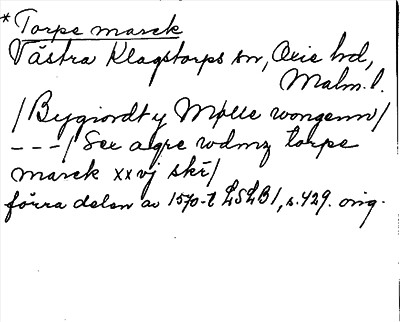 * Torpe marck
Västra Klagstorps sn, Oxie hd,
Malm. l.
/Bygiordt y Mølle wongenn/
---/ Sex agre wdmz torpe
marck xxvj skr/
förra delen av 1570-t LSLB1, s. 429. orig.